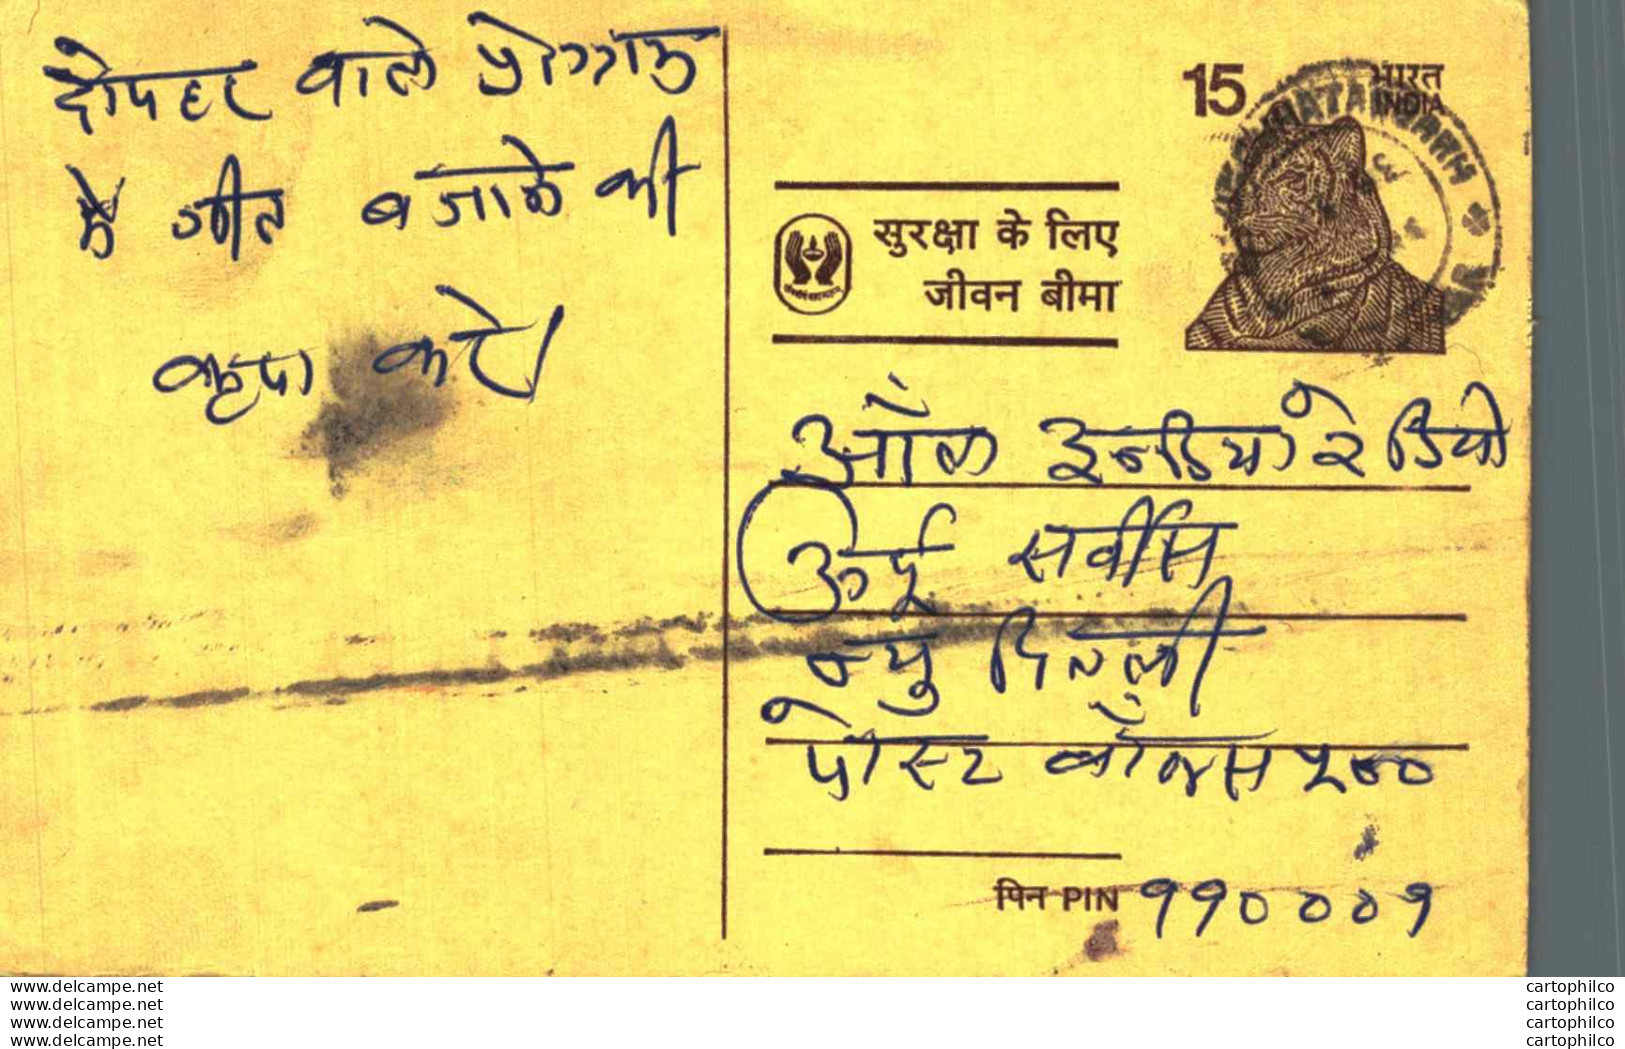 दोपहर वाले प्रोग्राम
मे गीत बजाने की
कृपा करे।
15
भारत
INDIA
सुरक्षा के लिए
जीवन बीमा
ऑल इन्डिया रेडियो
ऊर्दू सर्वीस
न्यु दिल्ली
पोस्ट बॉक्स ५००
पिन PIN ११०००१
www.delcampe.net
www.delcampe.net
www.delcampe.net
www.delcampe.net
cartophilco
cartophilco
cartophilco
cartophilco